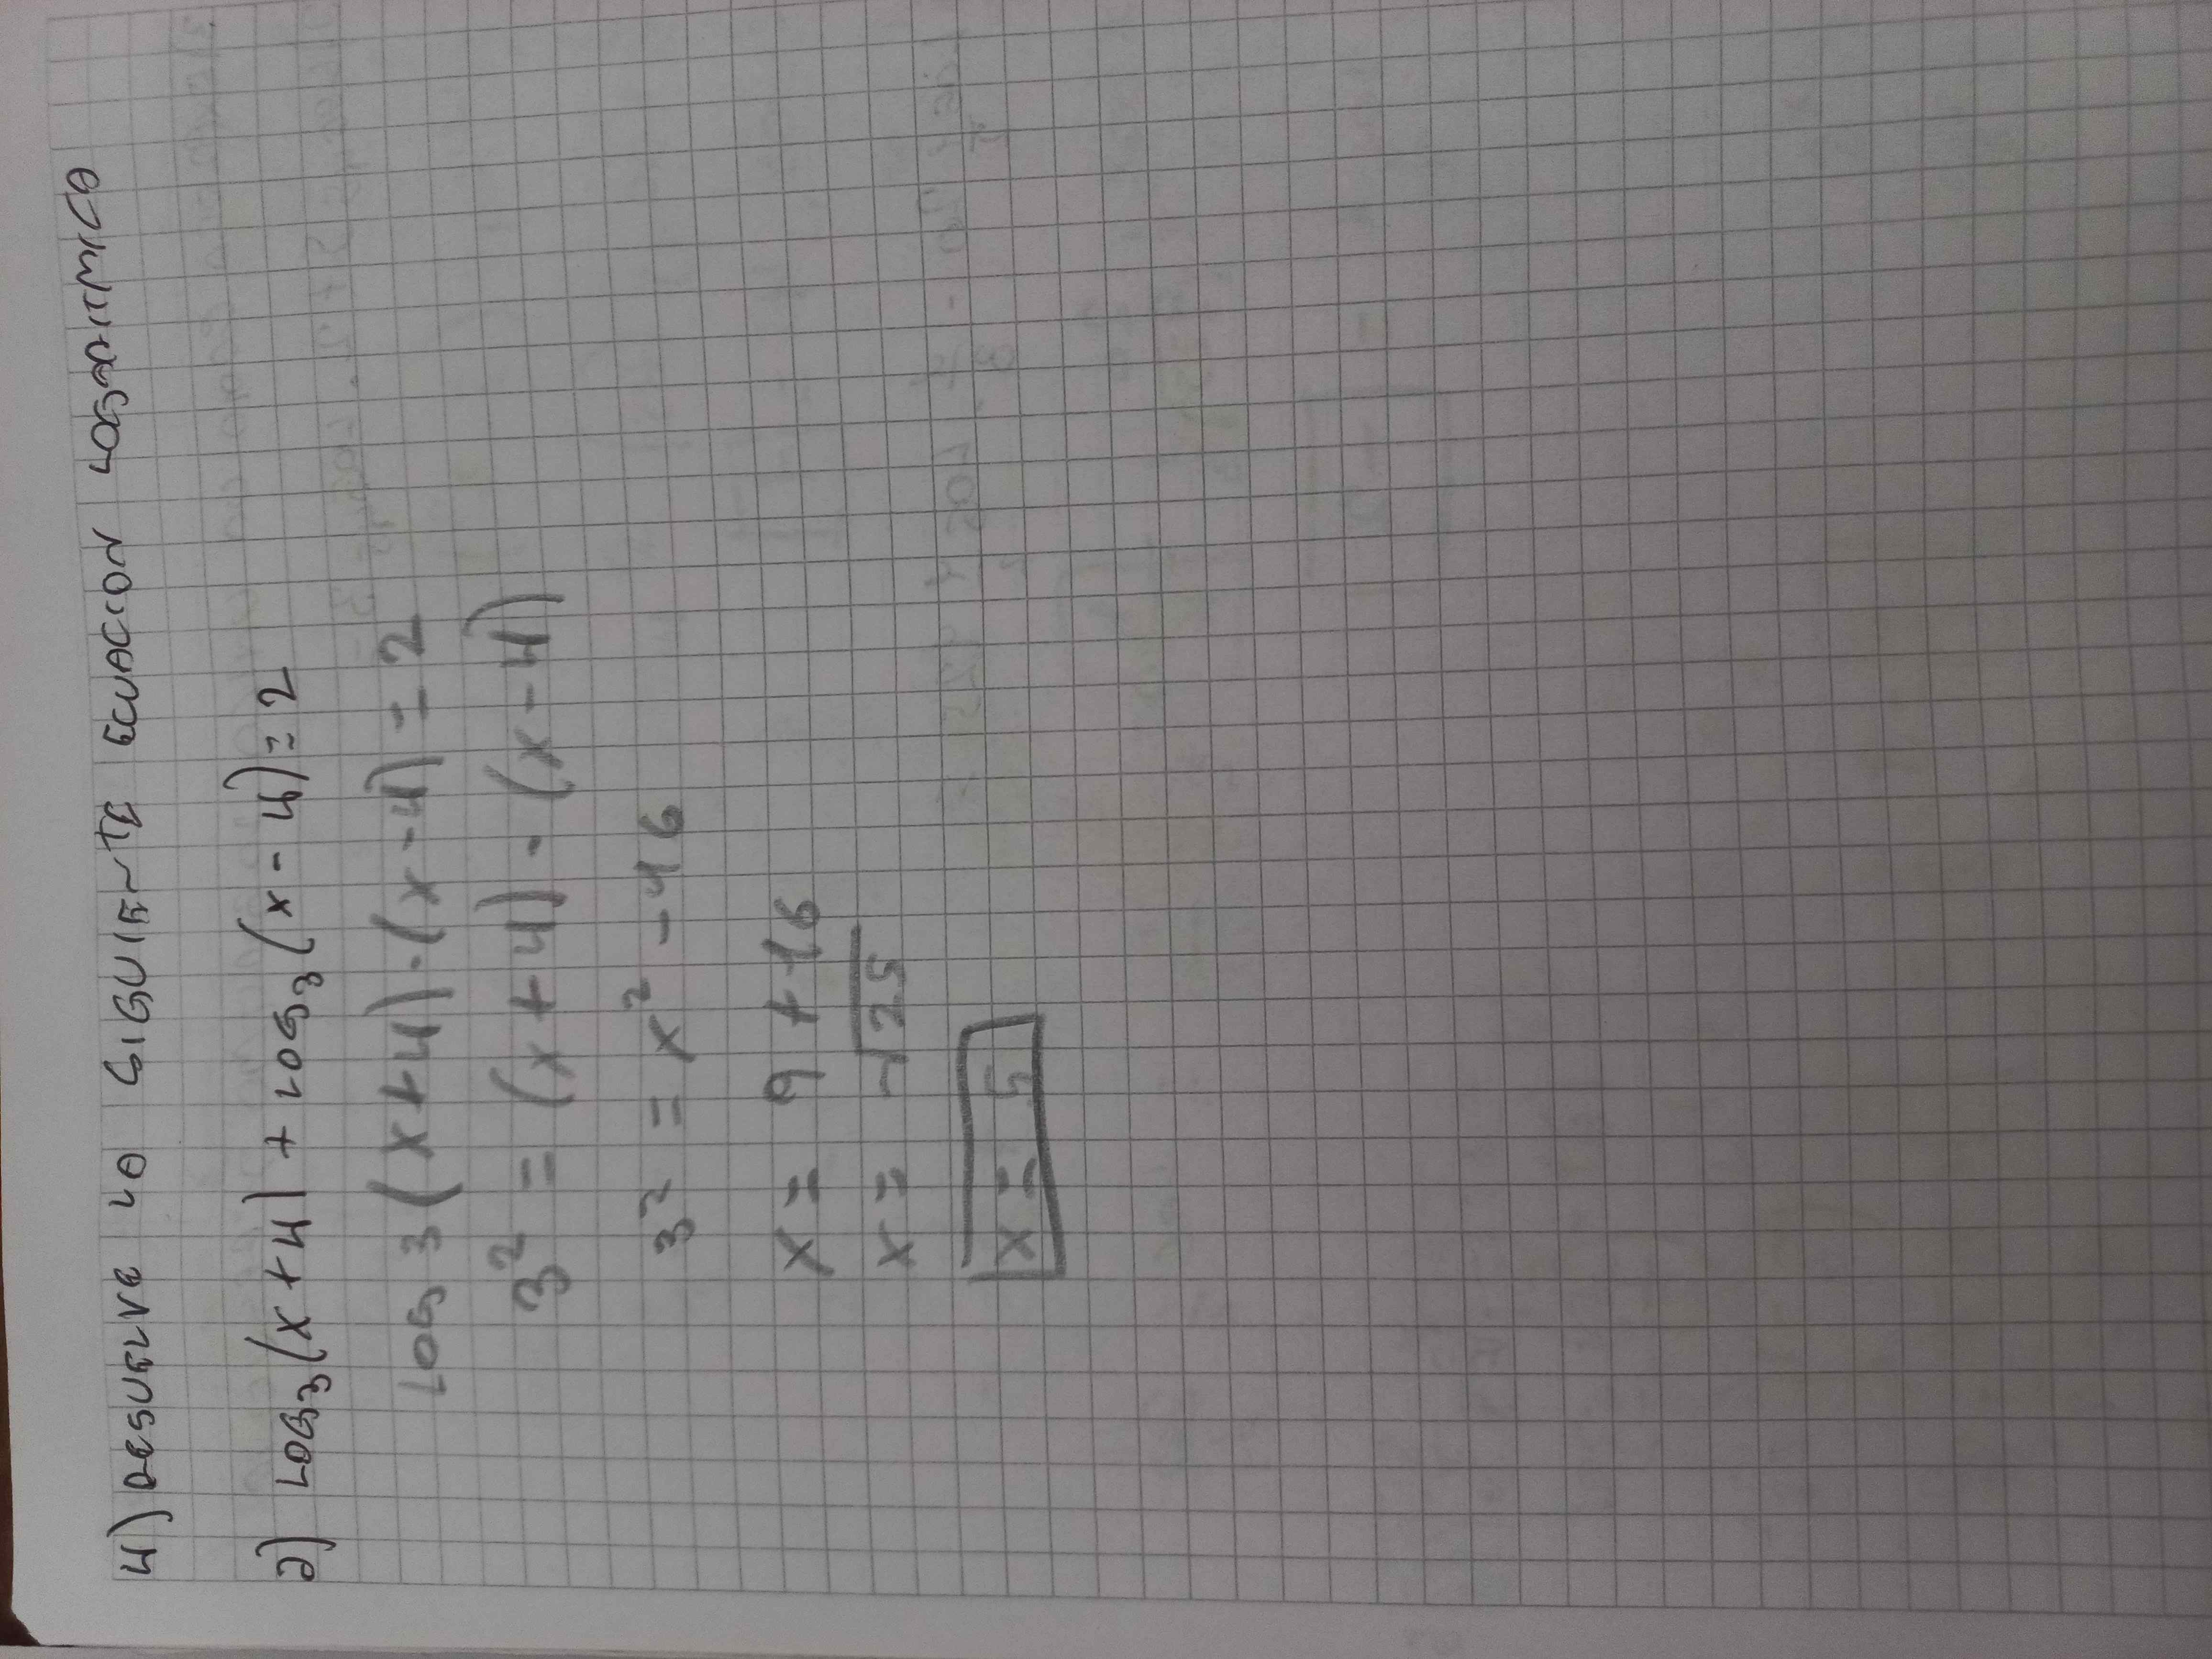 4) RESUELVE LA SIGUIENTE ECUACION LOGARITMICA
a) LOG₃(x+4) + LOG₃(x-4)=2
LOG 3 (x+4)·(x-4)=2
3² = (x+4)·(x-4)
3² = x² -16
x= 9 +16
x= √25
x= 5